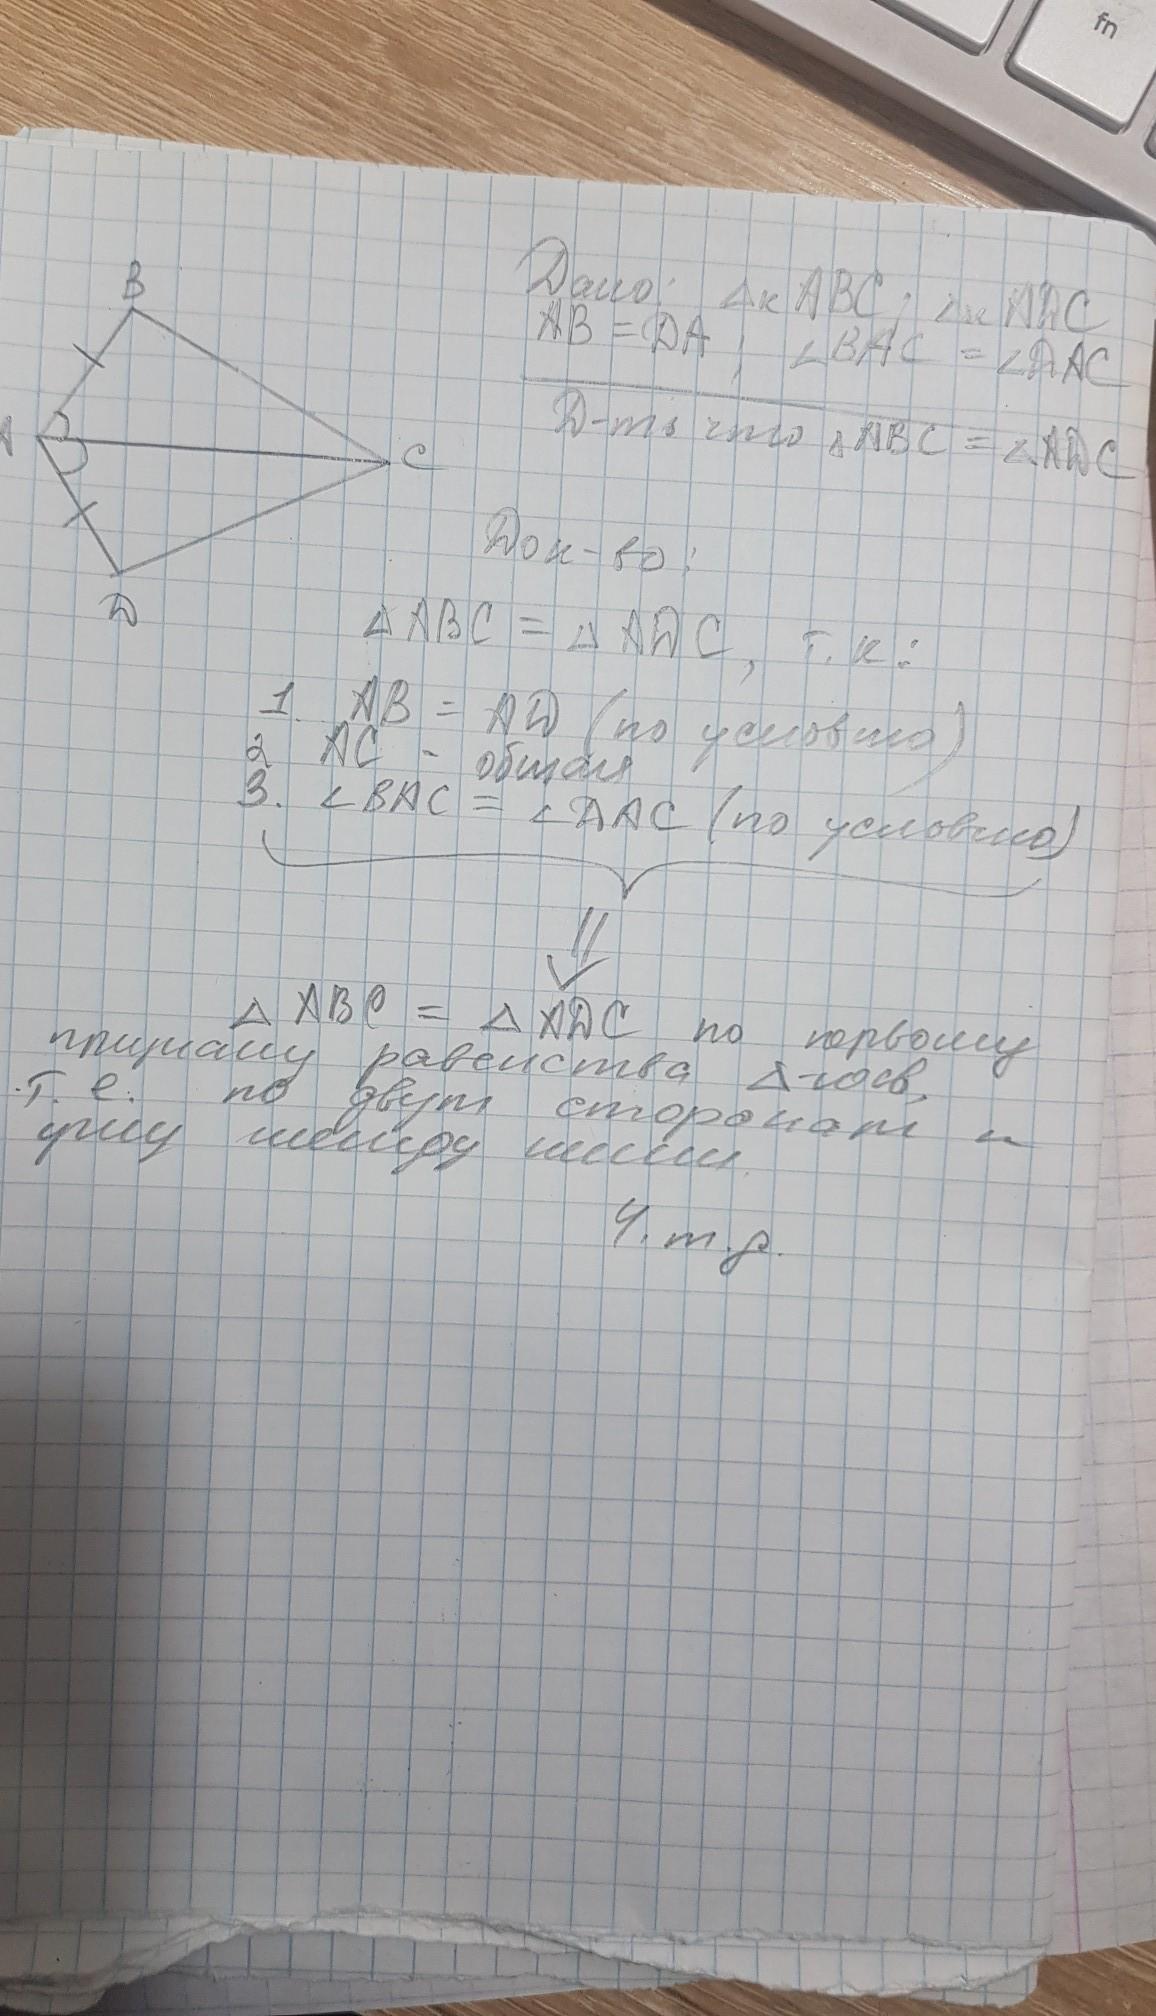 fn
B
A
C
D
Дано: Δк ABC; Δк ADC
AB = DA; ∠BAC = ∠DAC
Д-ть что ΔABC = ΔADC
Док-во:
ΔABC = ΔADC, т.к:
1. AB = AD (по условию)
2 AC - общая
3. ∠BAC = ∠DAC (по условию)
⇓
ΔABC = ΔADC по первому
признаку равенства Δ-ков,
т.е. по двум сторонам и
углу между ними.
Ч.т.д.